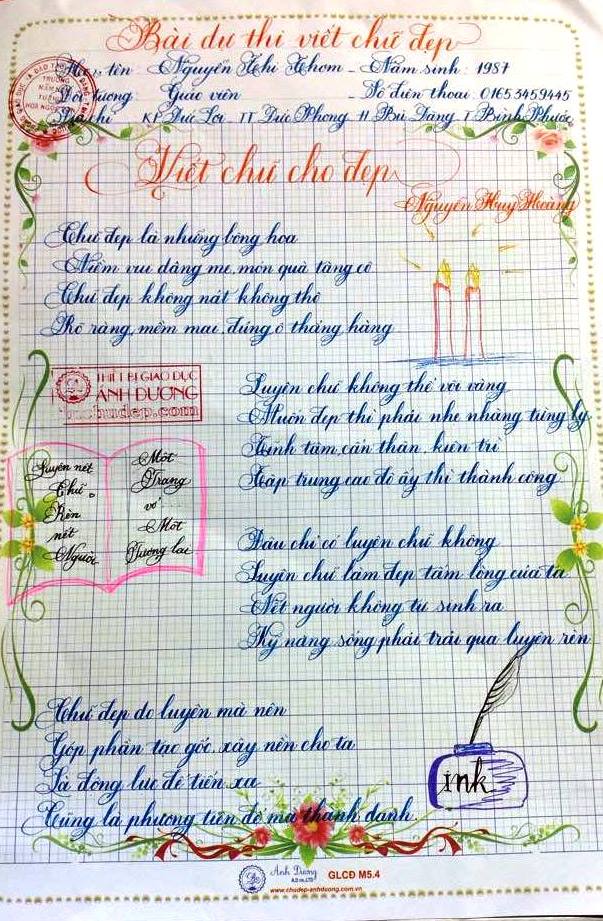 Bài dự thi viết chữ đẹp
Họ và tên Nguyễn Thị Thơm - Năm sinh: 1987
Đối tượng Giáo viên - Số điện thoại: 01653459445
Địa chỉ KP Đức Lợi - TT Đức Phong H Bù Đăng T Bình Phước
Viết chữ cho đẹp
Nguyễn Huy Hoàng
Chữ đẹp là những bông hoa
Niềm vui dâng mẹ, món quà tặng cô
Chữ đẹp không nát không thô
Rõ ràng, mềm mại, đúng ô thẳng hàng
THIẾT BỊ GIÁO DỤC
ÁNH DƯƠNG
Luyện chữ không thể vội vàng
Muốn đẹp thì phải nhẹ nhàng từng ly
Tĩnh tâm, cẩn thận, kiên trì
Tập trung cao độ ấy thì thành công
Luyện nét
Chữ
Rèn
nét
Người
Một
Trang
vở
Một
Tương lai
Đâu chỉ có luyện chữ không
Luyện chữ làm đẹp tâm lòng của ta
Nết người không tự sinh ra
Kỹ năng sống phải trải qua luyện rèn
Chữ đẹp do luyện mà nên
Góp phần tạo gốc, xây nền cho ta
Là động lực để tiến xa
Cũng là phương tiện để mà thành danh.
ink
Ánh Dương
GLCD M5.4
www.chudep-anhduong.com.vn